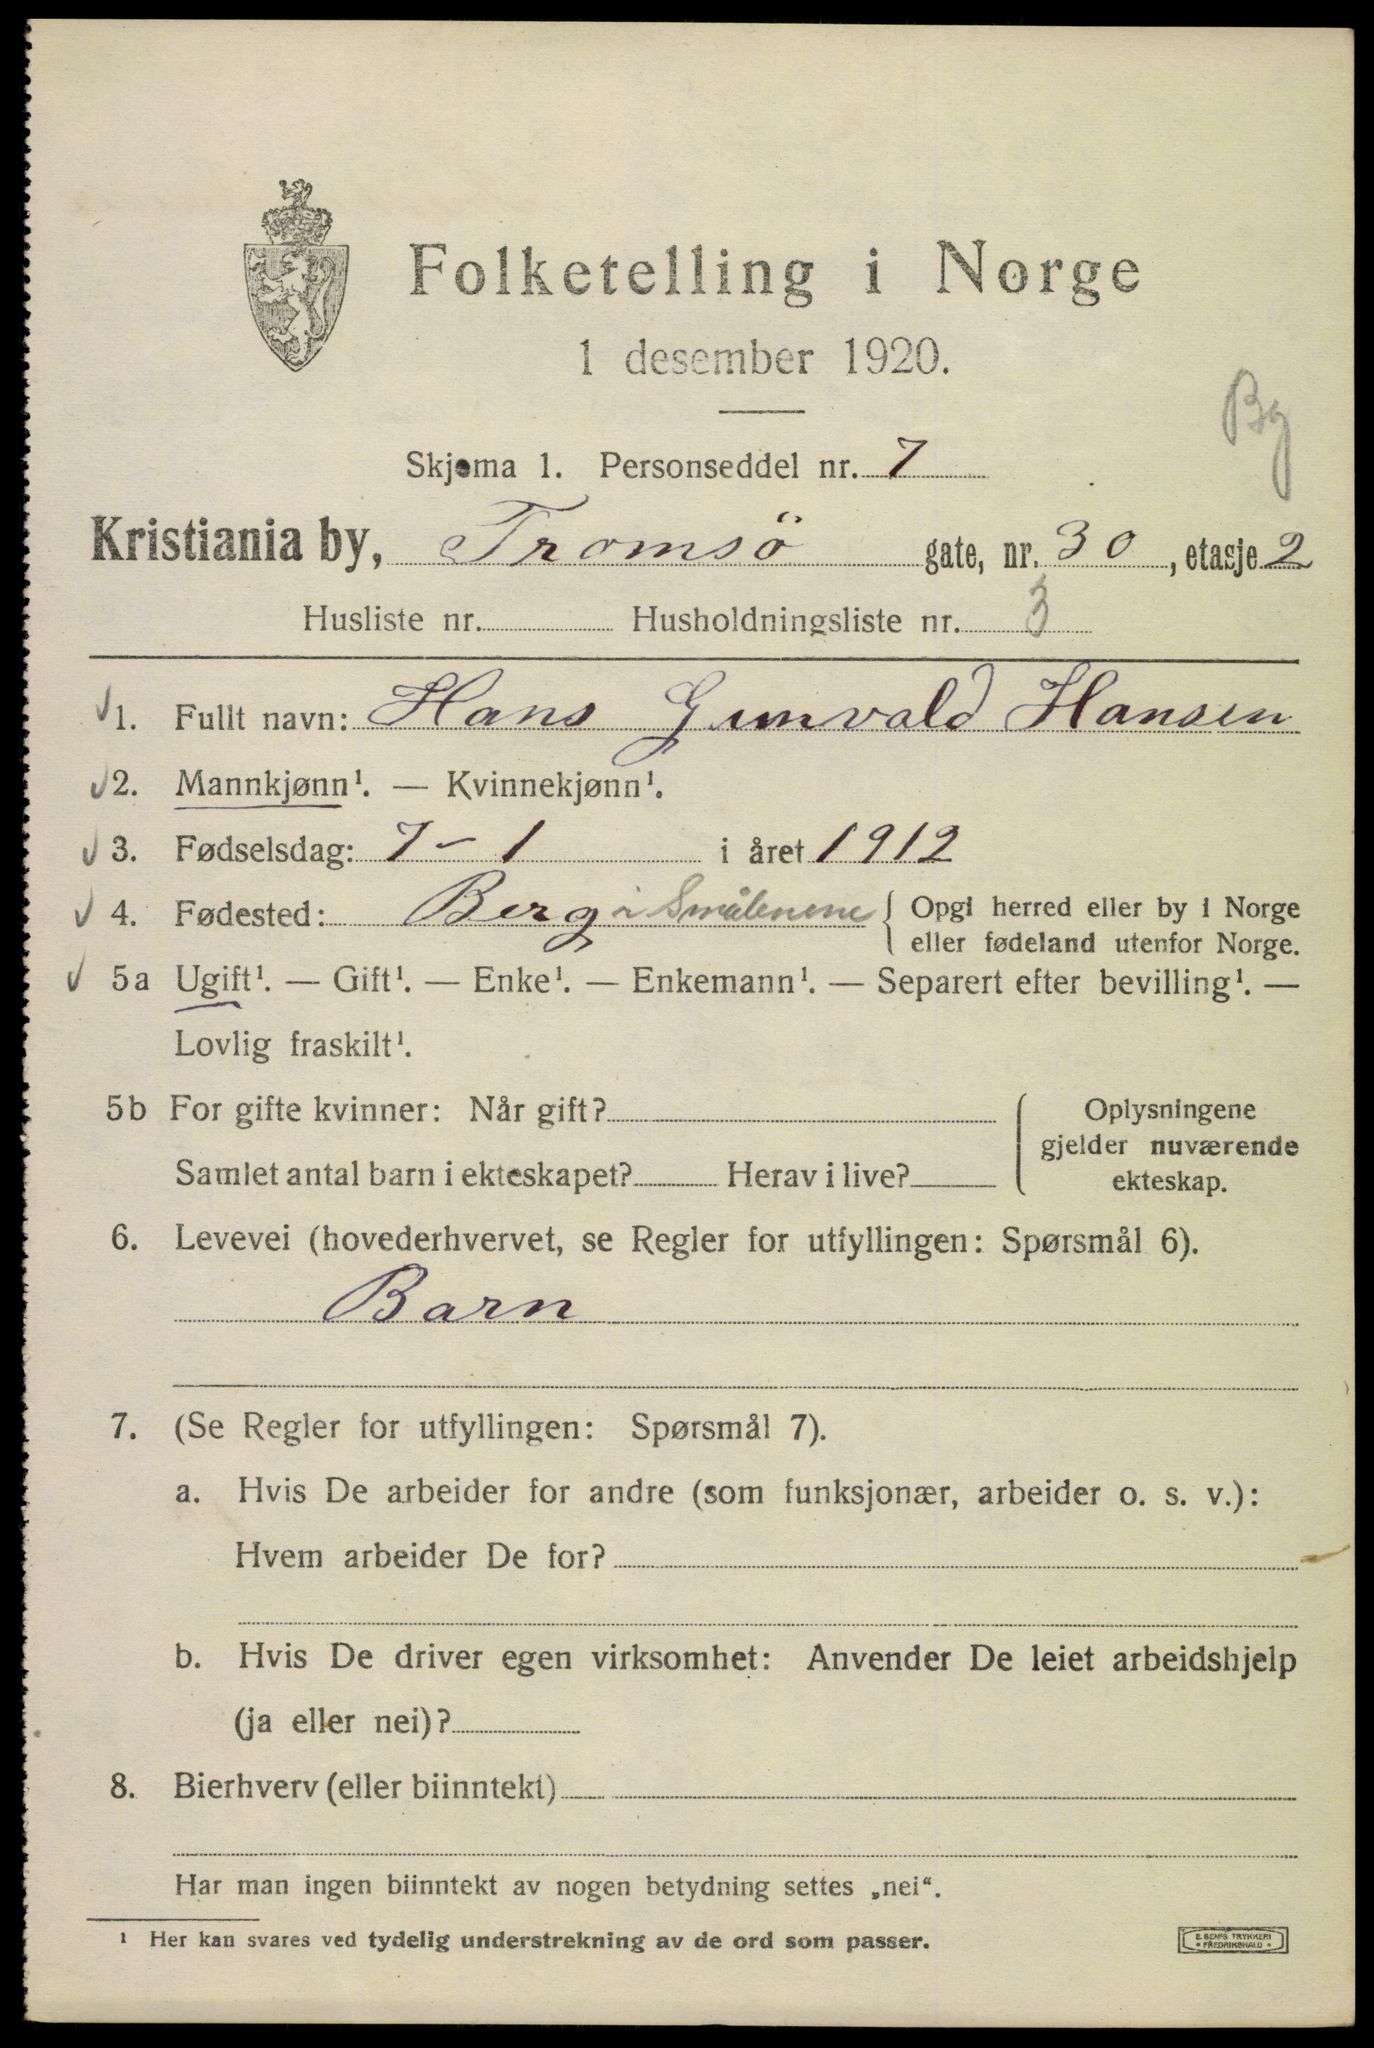 Folketelling i Norge
1 desember 1920.
By
Skjema 1. Personseddel nr. 7
Kristiania by, Tromsö gate, nr. 30, etasje 2
Husliste nr. Husholdningsliste nr. 3
1. Fullt navn: Hans Gunvald Hansen
2. Mannkjønn¹. — Kvinnekjønn¹.
3. Fødselsdag: 7-1 i året 1912
4. Fødested: Berg i Smålenene { Opgi herred eller by i Norge
eller fødeland utenfor Norge.
5a Ugift¹. — Gift¹. — Enke¹. — Enkemann¹. — Separert efter bevilling¹. —
Lovlig fraskilt¹.
5b For gifte kvinner: Når gift? Oplysningene
gjelder nuværende
Samlet antal barn i ekteskapet? Herav i live?
ekteskap.
6. Levevei (hovederhvervet, se Regler for utfyllingen: Spørsmål 6).
Barn
7. (Se Regler for utfyllingen: Spørsmål 7).
a. Hvis De arbeider for andre (som funksjonær, arbeider o. s. v.):
Hvem arbeider De for?
b. Hvis De driver egen virksomhet: Anvender De leiet arbeidshjelp
(ja eller nei)?
8. Bierhverv (eller biinntekt)
Har man ingen biinntekt av nogen betydning settes „nei“.
¹ Her kan svares ved tydelig understrekning av de ord som passer.
E. SEM'S TRYKKERI
• FREDRIKSHALD •